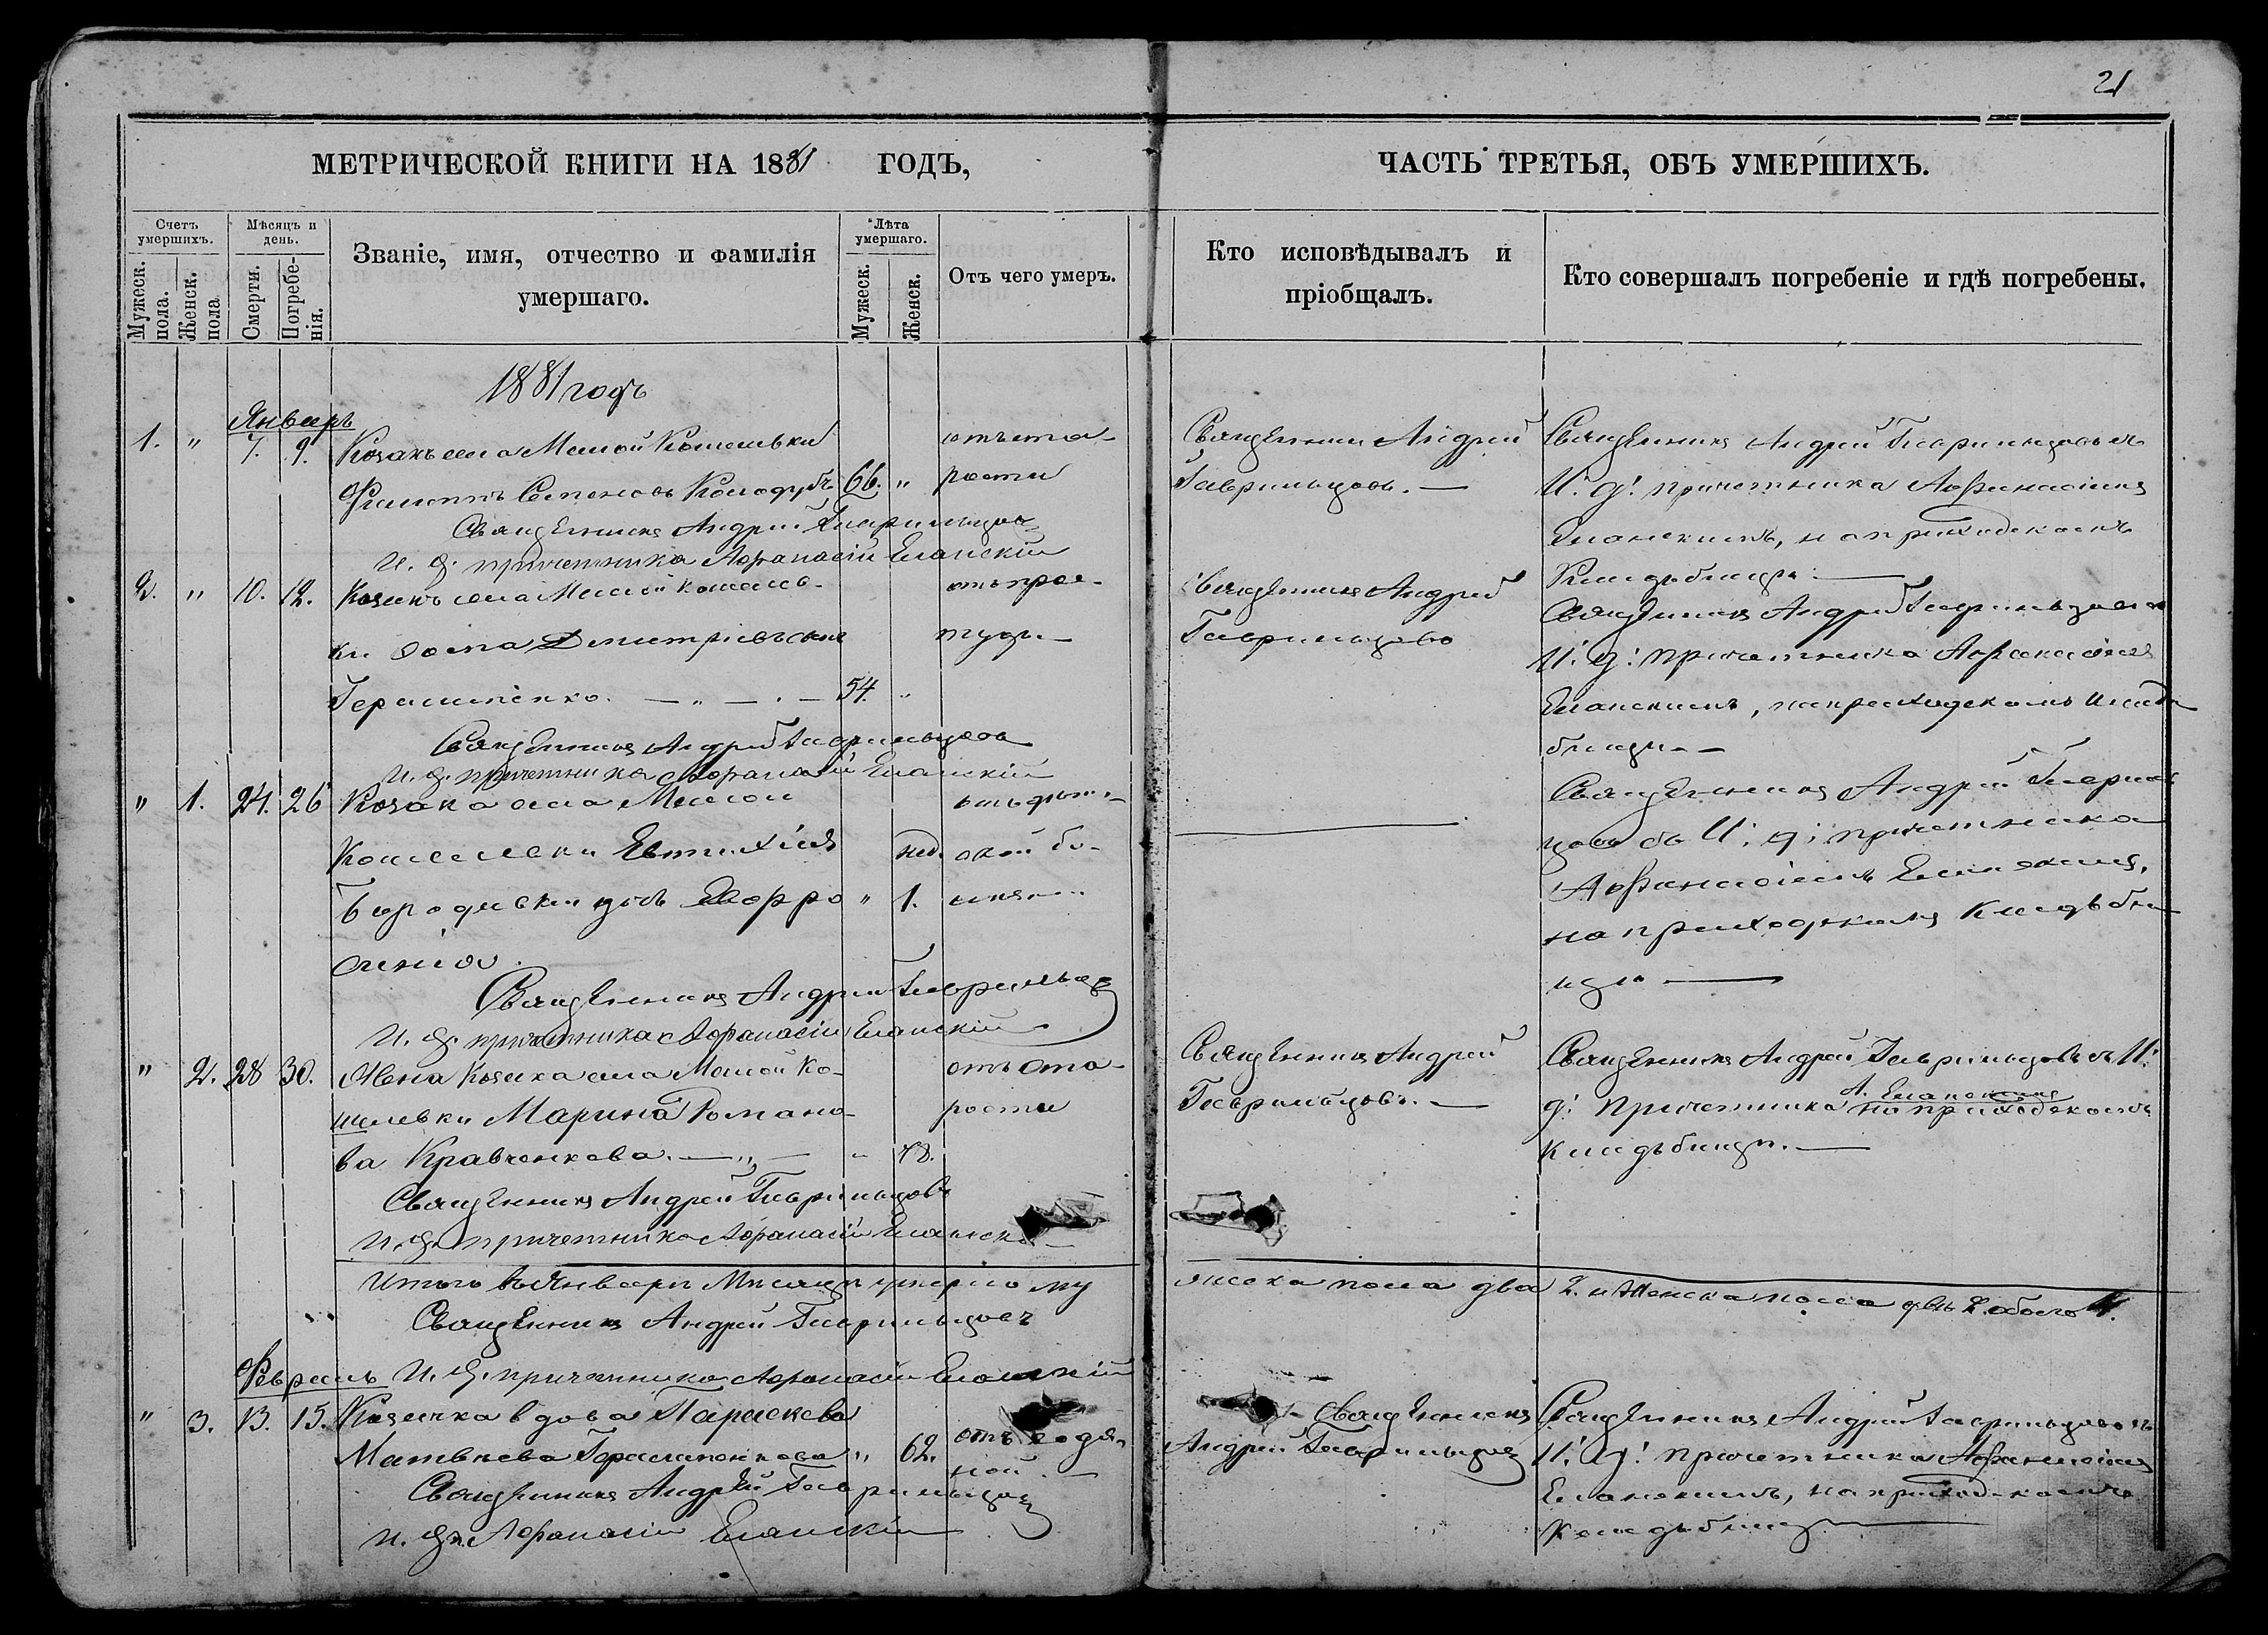 21
МЕТРИЧЕСКОЙ КНИГИ НА 1881 ГОДЪ,
ЧАСТЬ ТРЕТЬЯ, ОБЪ УМЕРШИХЪ.
Счетъ умершихъ.
Мужеск. пола.
Женск. пола
Мѣсяцъ и день.
Смерти.
Погребе-нія.
Званіе, имя, отчество и фамилія
умершаго.
Лѣта умершаго.
Мужеск.
Женск.
Отъ чего умеръ.
Кто исповѣдывалъ и
пріобщалъ.
Кто совершалъ погребеніе и гдѣ погребены.
1881 годъ
Январь
1. " 7. 9. Козакъ села Малой Кошельки
Филиппъ Семеновъ 66. "
отъ ста-
рости
Священникъ Андрей Гаврильцовъ
И. д. причетника Афанасій Еланскій
Священникъ Андрей
Гаврильцовъ. —
Священникъ Андрей Гаврильцовъ съ
И. д. причетника Афанасіемъ
Еланскимъ, на приходскомъ
Кладбищѣ. —
2. " 10. 12. Козакъ села Малой Кошель-
ки Дмитріевъ сынъ
Герасименко. — " — . — 54. "
отъ прос-
туды. —
Священникъ Андрей Гаврильцовъ
И. д. причетника Афанасій Еланскій
Священникъ Андрей
Гаврильцовъ
Священникъ Андрей Гаврильцовъ съ
И. д. причетника Афанасіемъ
Еланскимъ, на приходскомъ клад
бищѣ. —
" 1. 24. 26 Козака села Малой
Кошелевки Евтихія
дочь
" нед. 1.
Священникъ Андрей Гаврильцовъ
И. д. причетника Афанасій Еланскій
Священникъ Андрей Гавриль
цовъ съ И. д. причетника
Афанасіемъ Еланскимъ,
на приходскомъ Кладби
щѣ —
" 2. 28 30. Жена Козака села Малой Ко-
шелевки Марина Романо-
ва Кравченкова. — " — " 78.
отъ ста-
рости
Священникъ Андрей Гаврильцовъ
И. д. причетника Афанасій Еланскій
Священникъ Андрей
Гаврильцовъ. —
Священникъ Андрей Гаврильцовъ съ И.
д. причетника А. Еланскимъ на приходскомъ
кладбищѣ. —
Итого въ Январѣ Мѣсяцѣ умерло му
жеска пола два 2. и Женска пола двѣ 2. обоего 4.
Священникъ Андрей Гаврильцовъ
И. д. причетника Афанасій Еланскій
Февраль
" 3. 13. 15. Козачка вдова Параскева
Матвѣева Герасименкова " 62.
отъ водя-
ной. —
Священникъ Андрей Гаврильцовъ
и. д. п. Афанасій Еланскій
Священникъ
Андрей Гаврильцовъ
Священникъ Андрей Гаврильцовъ съ
И. д. причетника Афанасіемъ
Еланскимъ, на приходскомъ
кладбищѣ —